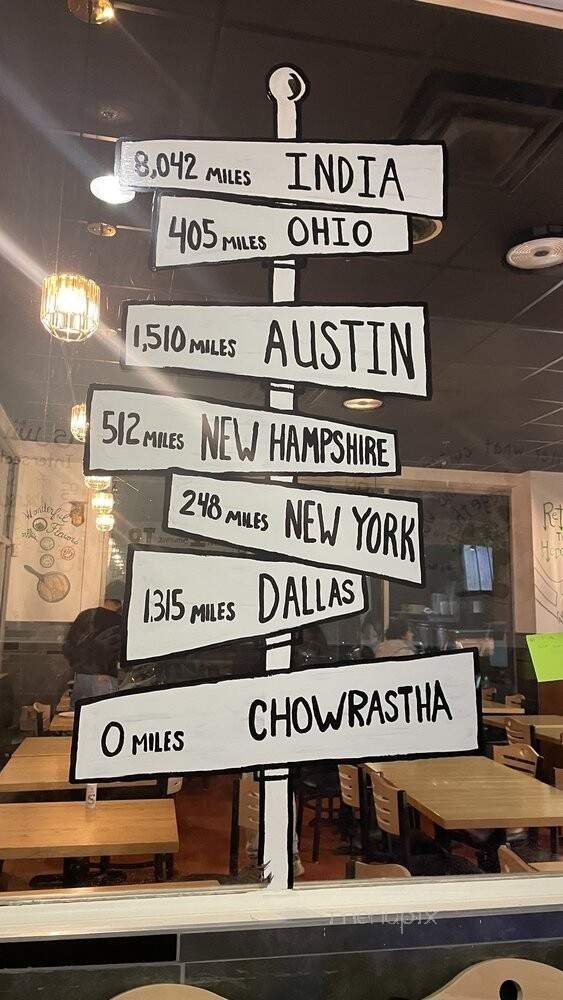 8,042 MILES INDIA
405 MILES OHIO
1,510 MILES AUSTIN
512 MILES NEW HAMPSHIRE
248 MILES NEW YORK
1315 MILES DALLAS
0 MILES CHOWRASTHA
Wonderful
Flavors
menupix